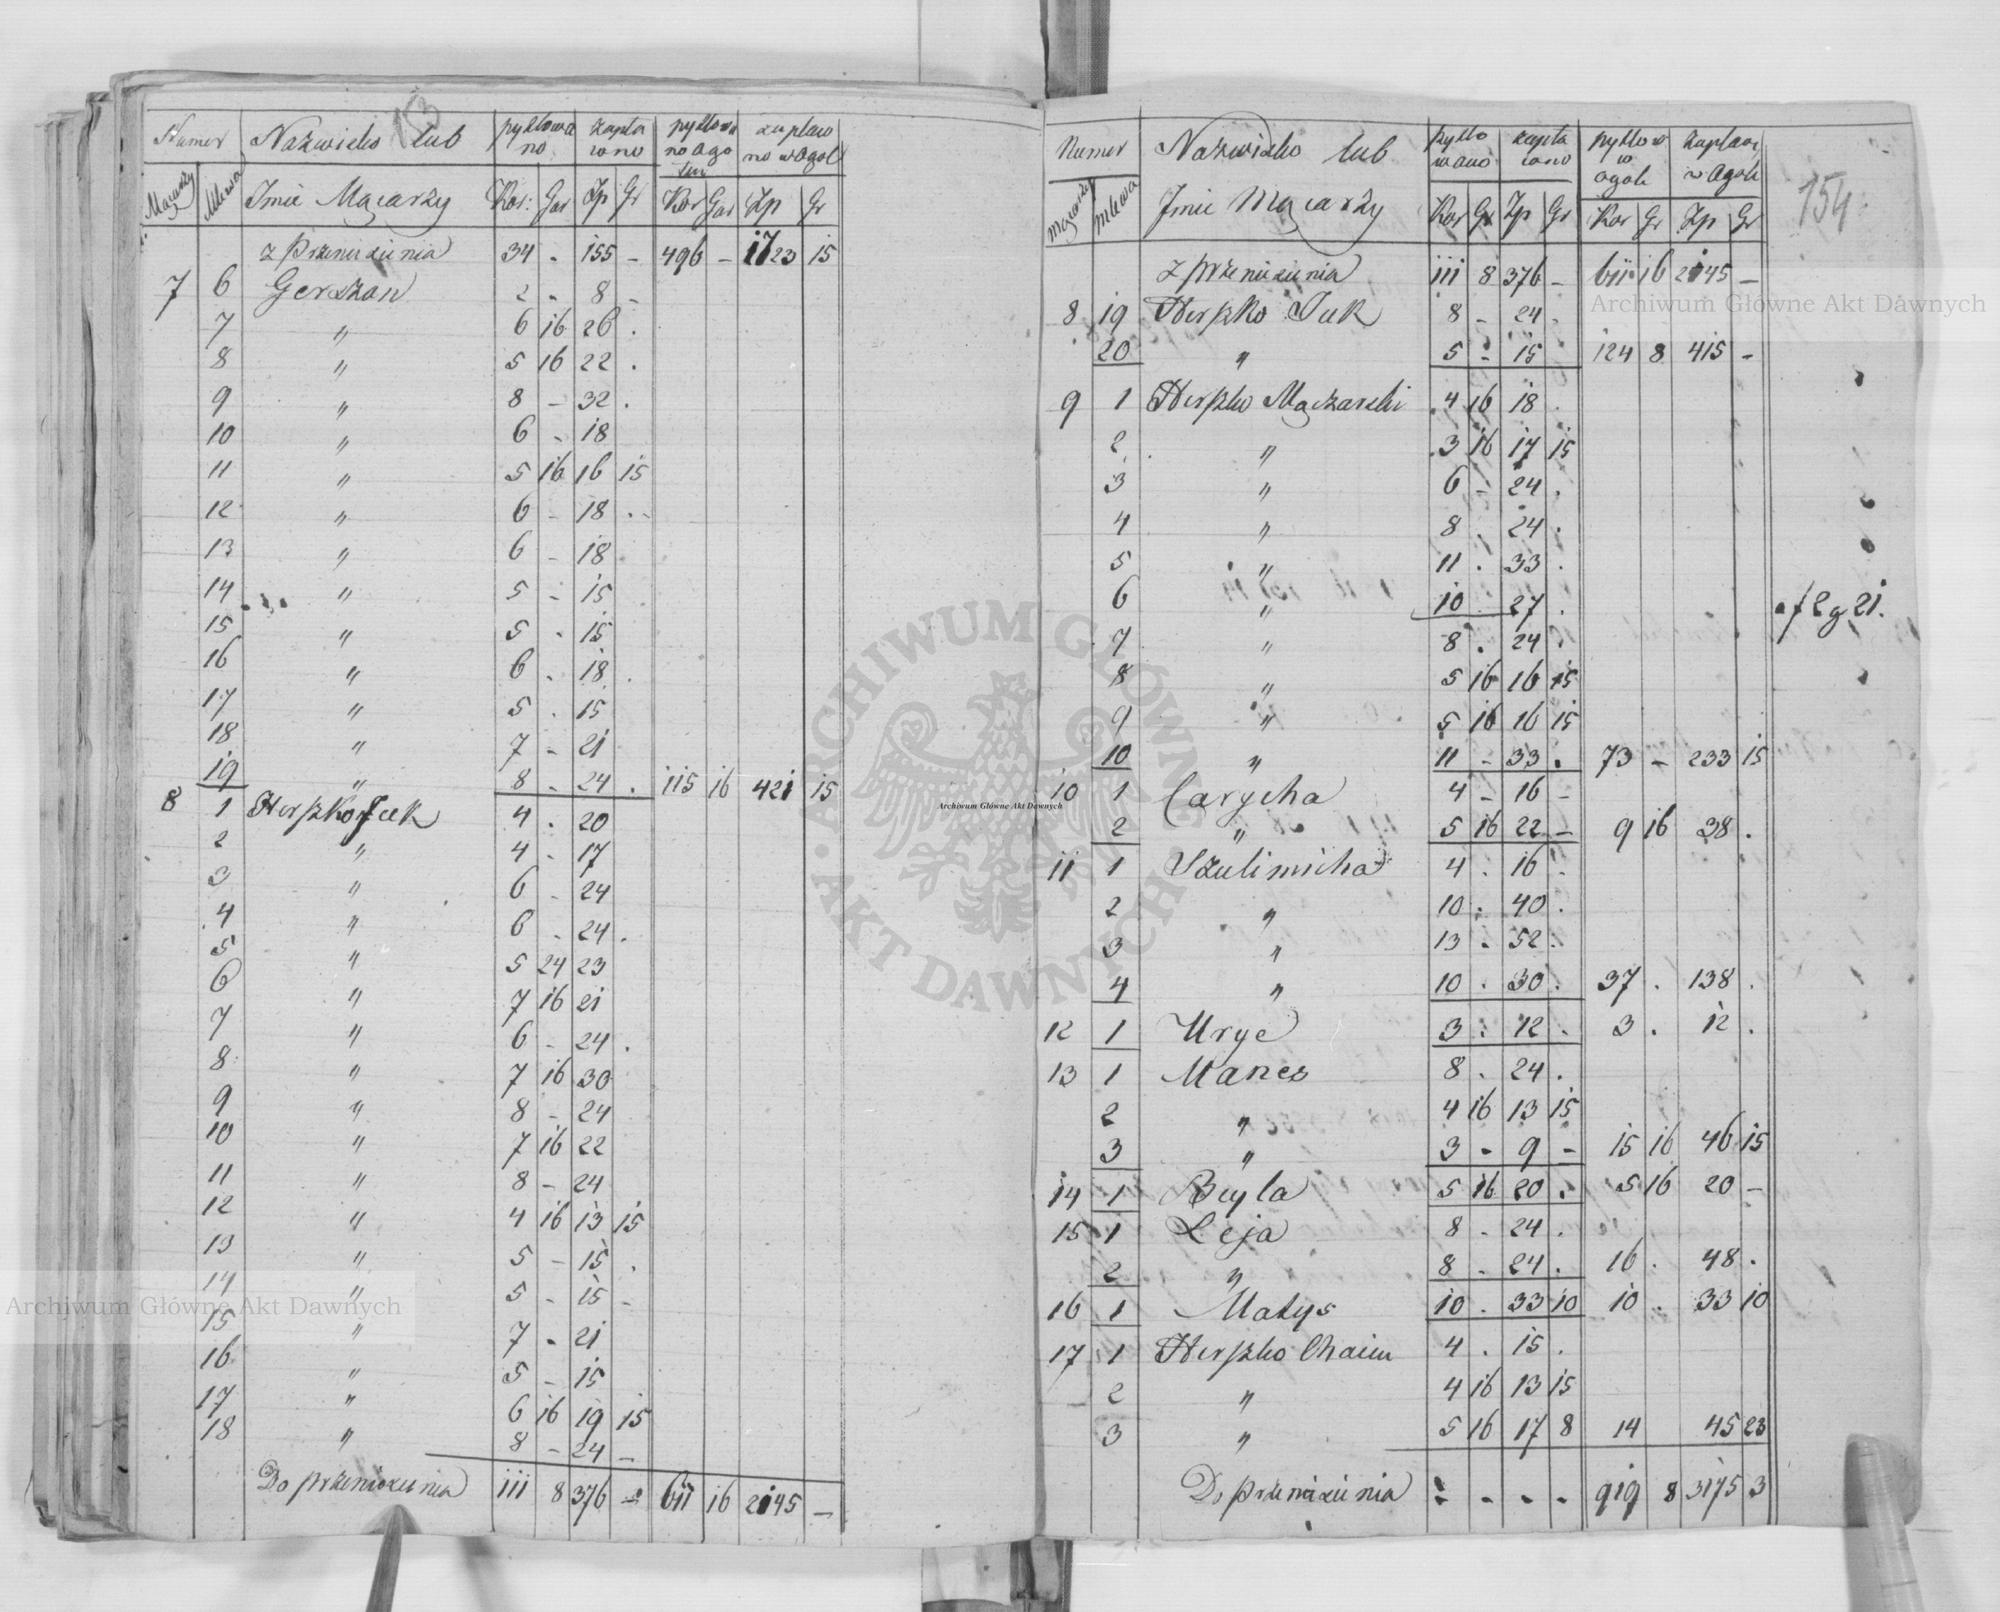 153
Numer Nazwisko lub pytlowa no zapła cono pytlowa no Ogo łem zapłaco no w Ogol
Mącarży Mlewa Imie Mącarży Kor: Gar Zp Gr Kor Gar Zp Gr
z przeniesienia 34 - 155 - 496 - 1723 15
7 6 Gerszon 2 - 8 -
7 " 6 16 26 .
8 " 5 16 22 .
9 " 8 - 32 .
10 " 6 - 18
11 " 5 16 16 15
12 " 6 - 18 . -
13 " 6 - 18
14 " 5 - 15
15 " 5 - 15
16 " 6 . 18 .
17 " 5 . 15
18 " 7 - 21
19 " 8 - 24 . 115 16 421 15
8 1 Herszko Juk 4 . 20
2 " 4 - 17
3 " 6 - 24
4 " 6 - 24 .
5 " 5 24 23
6 " 7 16 21
7 " 6 - 24 .
8 " 7 16 30
9 " 8 - 24
10 " 7 16 22
11 " 8 - 24
12 " 4 16 13 15
13 " 5 - 15 .
14 " 5 - 15 -
15 " 7 - 21
16 " 5 - 15
17 " 6 16 19 15
18 " 8 - 24 -
Do przeniesienia 111 8 376 - 611 16 2145 -
154
Numer Nazwisko lub pytlo wano zapła cono pytlow w ogole zapłac w Ogole
Mącarży Mlewa Imie Mącarży Kor Gr Zp Gr Kor Gr Zp Gr
z przeniesienia 111 8 376 - 611 16 2145 -
8 19 Herszko Juk 8 - 24 -
20 " 5 - 15 124 8 415 -
9 1 Herszko Mączarski 4 16 18 .
2 " 3 16 17 15
3 " 6 - 24 .
4 " 8 . 24 .
5 " 11 . 33 .
6 " 10 . 27 .
7 " 8 . 24 .
8 " 5 16 16 15
9 " 5 16 16 15
10 " 11 - 33 . 73 - 233 15
10 1 Carycha 4 - 16 -
2 " 5 16 22 - 9 16 38 .
11 1 Szulimicha 4 . 16 .
2 " 10 . 40 .
3 " 13 . 52 .
4 " 10 . 30 . 37 . 138 .
12 1 Urye 3 . 12 . 3 . 12 .
13 1 Manes 8 . 24 .
2 " 4 16 13 15
3 " 3 - 9 - 15 16 46 15
14 1 Beyla 5 16 20 . 5 16 20 -
15 1 Leja 8 . 24 .
2 " 8 . 24 . 16 . 48 .
16 1 Matys 10 . 33 10 10 . 33 10
17 1 Herszko Chaim 4 . 15 .
2 " 4 16 13 15
3 " 5 16 17 8 14 45 23
Do przeniesienia - - - - 919 8 3175 3
Archiwum Główne Akt Dawnych
Archiwum Główne Akt Dawnych
Archiwum Główne Akt Dawnych
ARCHIWUM GŁÓWNE AKT DAWNYCH